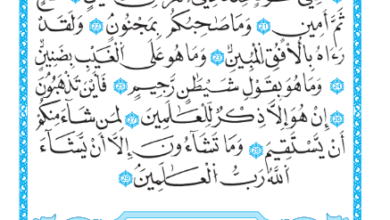 ثَمَّ أَمِينٍ ٢١ وَمَا صَاحِبُكُم بِمَجْنُونٍ ٢٢ وَلَقَدْ
رَءَاهُ بِالْأُفُقِ الْمُبِينِ ٢٣ وَمَا هُوَ عَلَى الْغَيْبِ بِضَنِينٍ
٢٤ وَمَا هُوَ بِقَوْلِ شَيْطَٰنٍ رَّجِيمٍ ٢٥ فَأَيْنَ تَذْهَبُونَ
٢٦ إِنْ هُوَ إِلَّا ذِكْرٌ لِّلْعَٰلَمِينَ ٢٧ لِمَن شَآءَ مِنكُمْ
أَن يَسْتَقِيمَ ٢٨ وَمَا تَشَآءُونَ إِلَّآ أَن يَشَآءَ
اللَّهُ رَبُّ الْعَٰلَمِينَ ٢٩